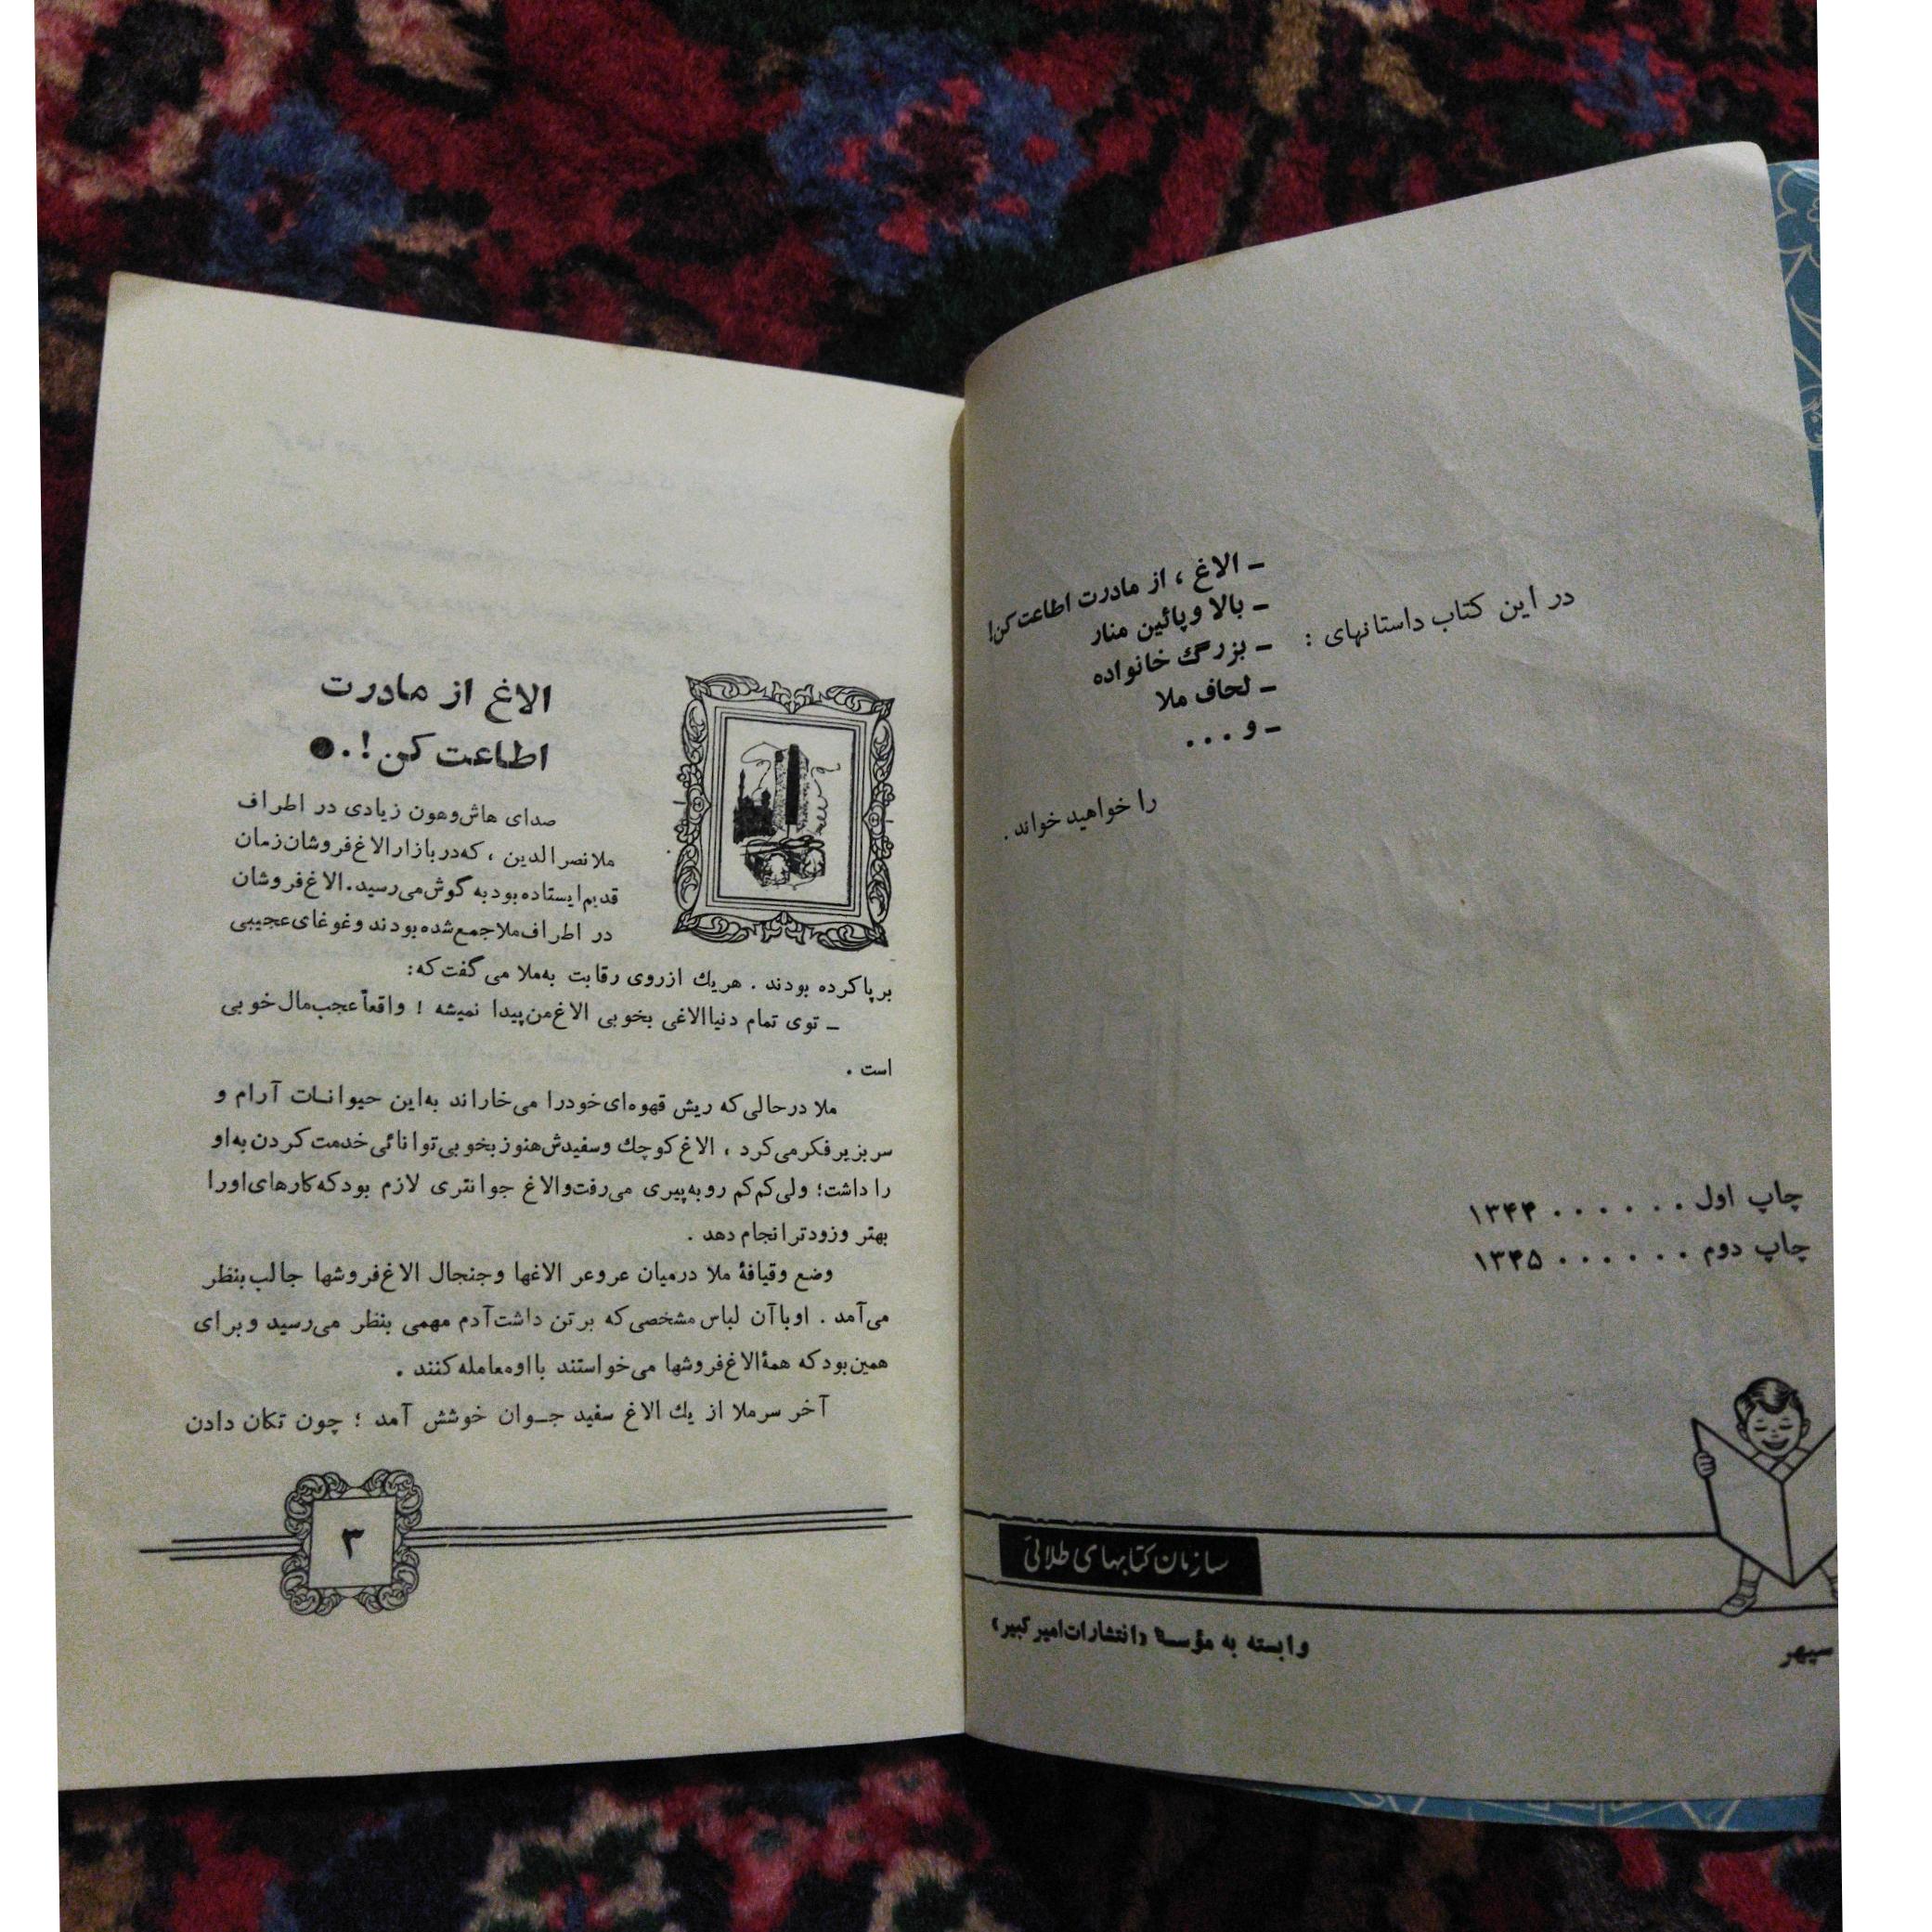 در این کتاب داستانهای :
ـ الاغ ، از مادرت اطاعت کن!
ـ بالا و پائین منار
ـ بزرگ خانواده
ـ لحاف ملا
ـ و . . .
را خواهید خواند .
چاپ اول . . . . . . ۱۳۴۴
چاپ دوم . . . . . . ۱۳۴۵
سازمان کتابهای طلائی
وابسته به مؤسسهٔ «انتشارات امیر کبیر»
سپهر
الاغ از مادرت
اطاعت کن !.●
صدای هاش‌وهون زیادی در اطراف
ملا نصرالدین ، که در بازار الاغ‌فروشان زمان
قدیم ایستاده بود به گوش می‌رسید. الاغ‌فروشان
در اطراف ملا جمع شده بودند و غوغای عجیبی
برپا کرده بودند . هریك از روی رقابت به‌ملا می گفت که:
ـ توی تمام دنیا الاغی بخوبی الاغ من پیدا نمیشه ! واقعاً عجب مال خوبی
است .
ملا در حالی که ریش قهوه‌ای خود را می‌خاراند به‌این حیوانات آرام و
سربزیر فکر می‌کرد ، الاغ کوچك و سفیدش هنوز بخوبی توانائی خدمت کردن به‌او
را داشت؛ ولی کم‌کم رو به‌پیری می‌رفت و الاغ جوانتری لازم بود که کارهای او را
بهتر و زودتر انجام دهد .
وضع و قیافهٔ ملا درمیان عروعر الاغها و جنجال الاغ‌فروشها جالب بنظر
می‌آمد . او با آن لباس مشخصی که بر تن داشت آدم مهمی بنظر می‌رسید و برای
همین بود که همهٔ الاغ‌فروشها می‌خواستند با او معامله کنند .
آخر سر ملا از یك الاغ سفید جـوان خوشش آمد ؛ چون تکان دادن
۳